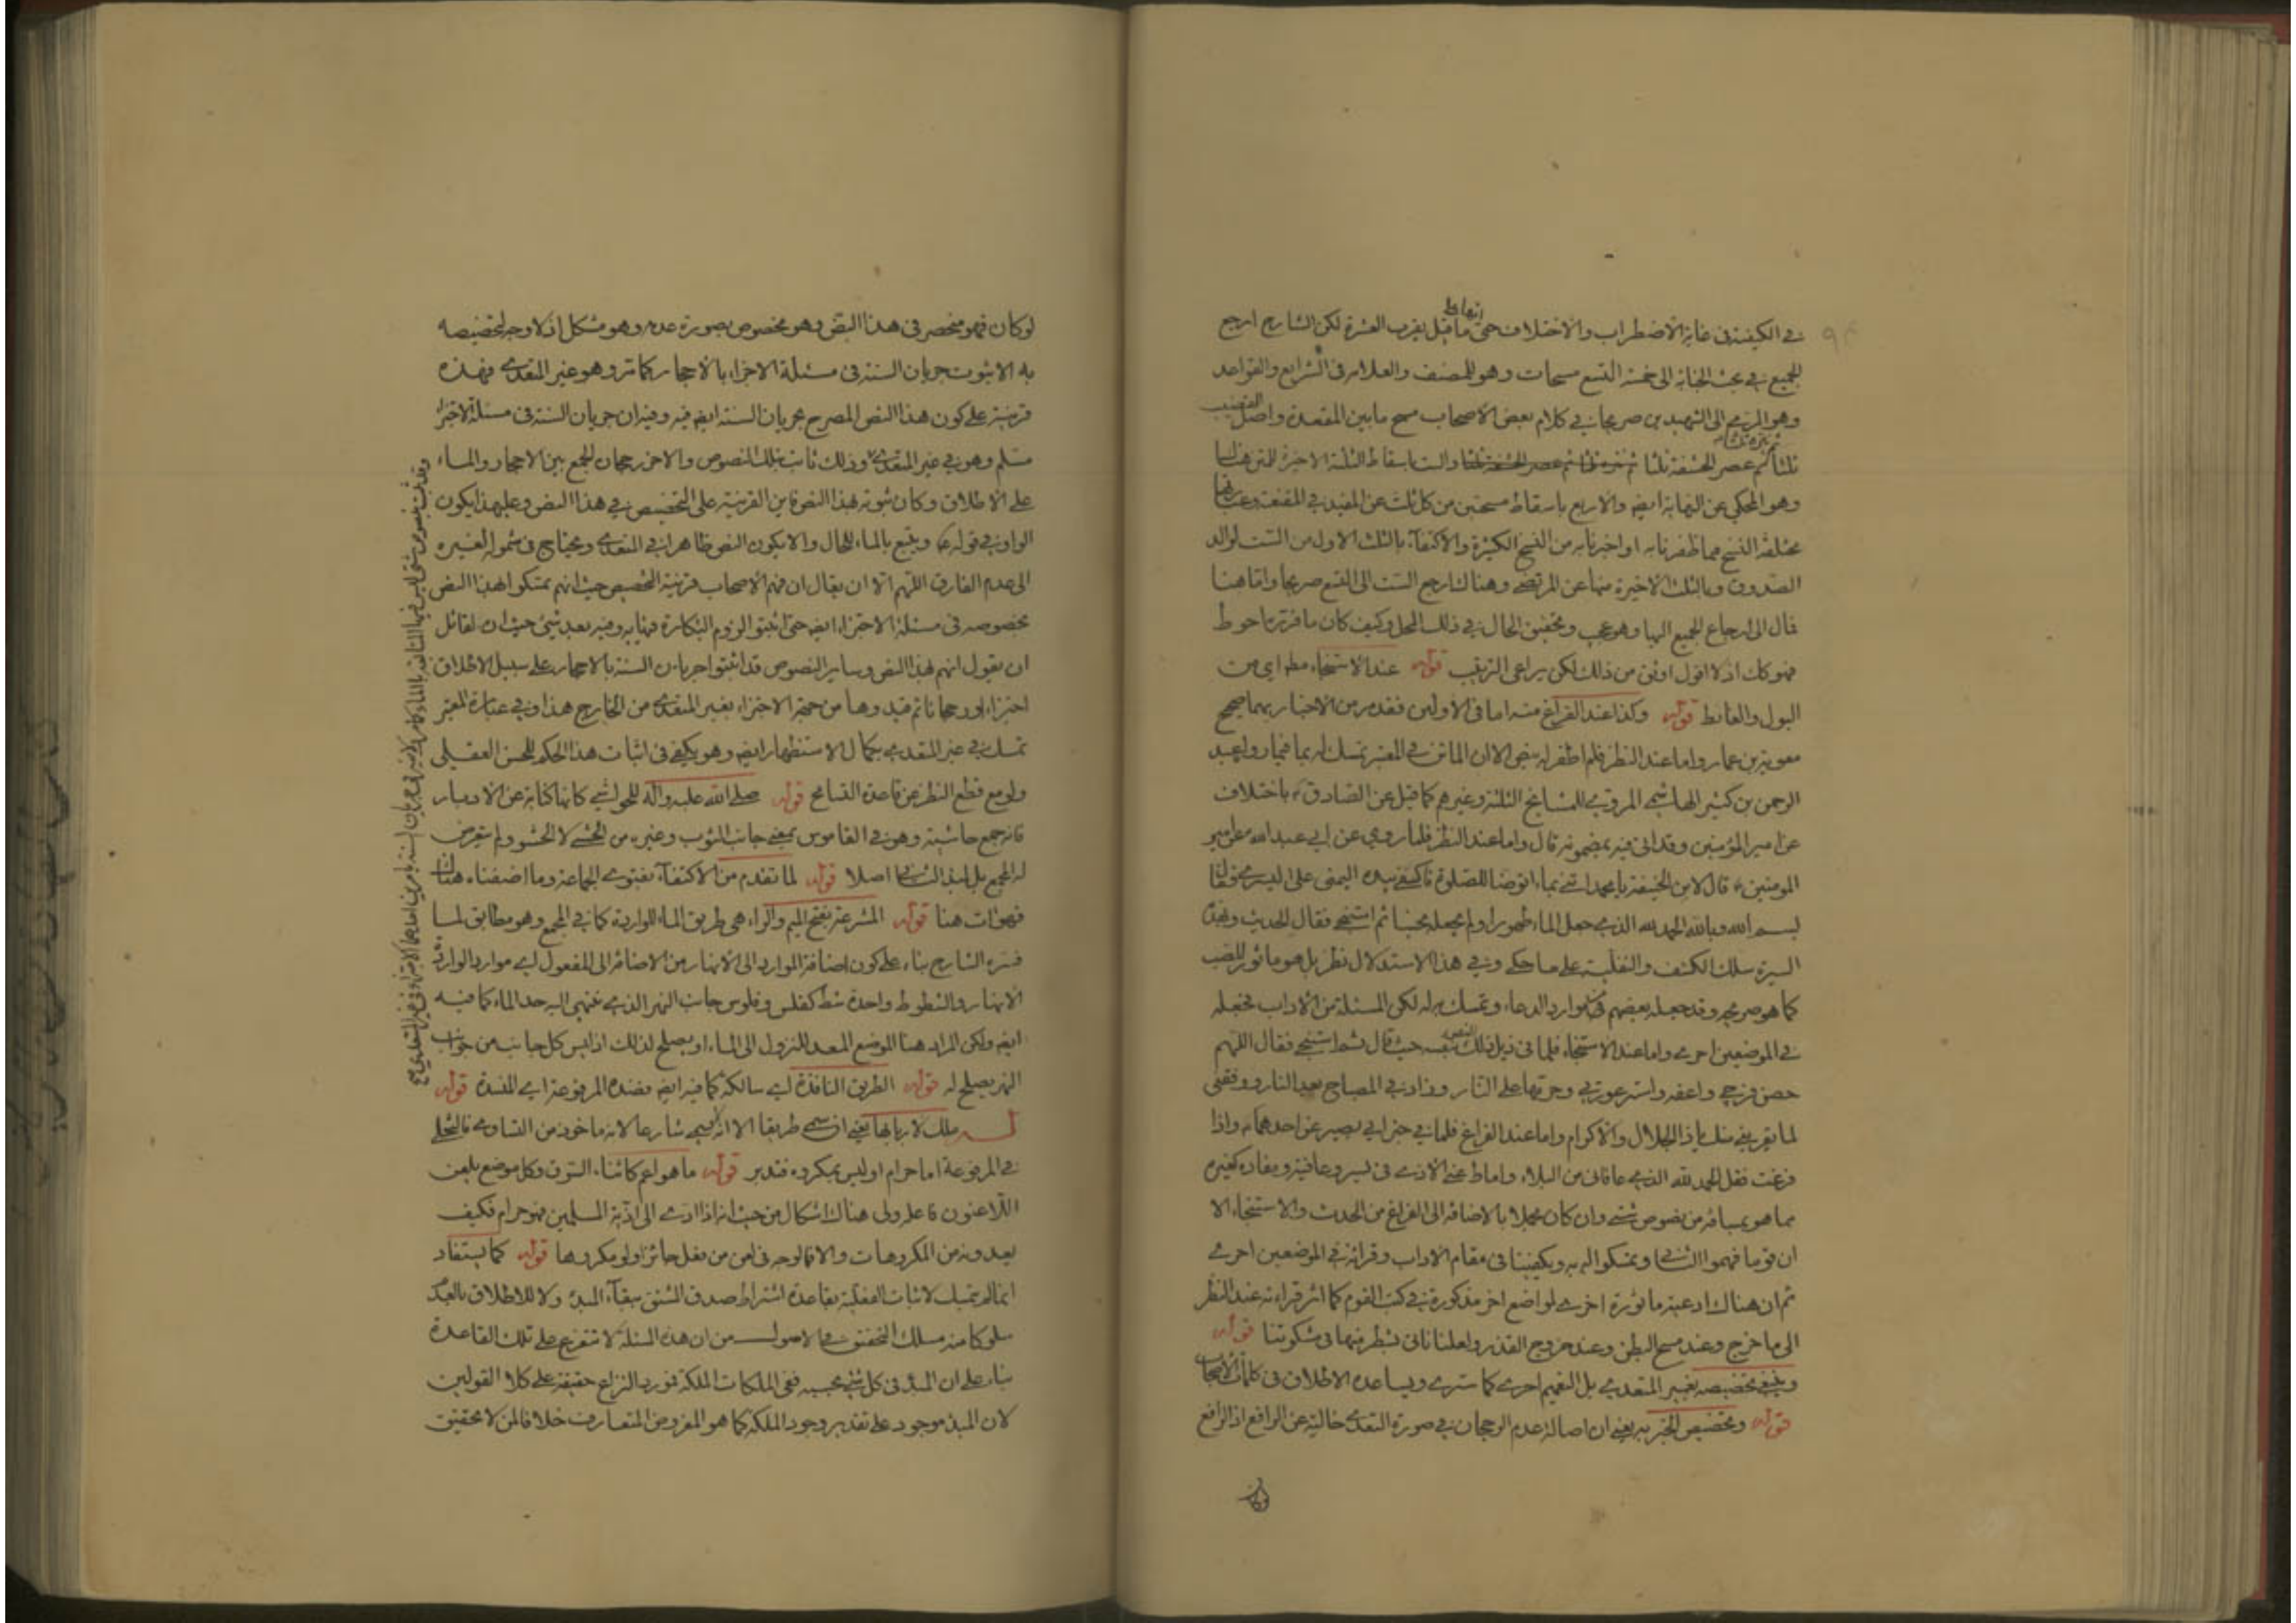 في الكيفية في غاية الاضطراب والاختلاف حتى قيل انها مما يقرب العشرة لكن الشارح ارجع
الجميع في بحث الجنابة الى خمسة التسع مسحات وهو للمصنف والعلامه في الشرايع والقواعد
وهو المرضي الى الشهيدين صريحا في كلام بعض الاصحاب مسح ما بين المقعدة واصل القضيب
ثلثا ثم عصر الحشفة ثلثا والست باسقاط الثلثة الاخيرة
وهو المحكي عن النهاية ايضه والاربع باسقاط مسحتين من كل ثلث عن المفيد في المقنعة
مختلفة النسخ مما ظفرنا به او اخبرنا به من النسخ الكثيرة والاكتفاء بالثلث الاول من الست لوالد
الصدوق وبالثلث الاخيرة منها عن المرتضى وهناك ارجع الست الى التسع صريحا واما هنا
قال الى ارجاع الجميع اليها وهو عجب وتحقيق الحال في ذلك المحل وكيف كان ما قرره احوط
فهو كك اذ لا اقول اوثق من ذلك لكن يراعى الترتيب قوله عند الاستنجاء مط اي من
البول والغائط قوله وكذا عند الفراغ منه اما في الاولين فقد مر من الاخبار بهما صحيح
معوية بن عمار واما عند النظر فلم اظفر له بنص الا ان الماتن في المعتبر تمسك له بما فيما رواه عبد
الرحمن بن كثير الهاشمي المروي للمشايخ الثلثة وغيرهم كما قيل عن الصادق ع باختلاف
عن امير المؤمنين وقد اتى فيه بمضمونه قال واما عند النظر فلما روي عن ابي عبد الله عن امير
المومنين ع قال لابن الحنفية يا محمد ائتني بماء اتوضا للصلوة فاكفى بيده اليمنى على اليسرى فقال
بسم الله وبالله الحمد لله الذي جعل الماء طهورا ولم يجعله نجسا ثم استنجى فقال الحديث
السيرة سلك الكشف والنفلية على ما حكي وفي هذا الاستدلال نظر بل هو ماثور للصب
كما هو صريحه وقد جعله بعضهم من موارد الدعاء وتمسك به له لكن المسئلة من الاداب فجعله
في الموضعين احرى واما عند الاستنجاء فلما في ذيل ذلك النص حيث قال ثم استنجى فقال اللهم
حصن فرجي واعفه واستر عورتي وحرمها على النار وزاد في المصباح بعد النار ووفقني
لما يقربني منك يا ذا الجلال والاكرام واما عند الفراغ فلما في خبر ابي بصير عن احدهما ع واذا
فرغت فقل الحمد لله الذي عافاني من البلاء واماط عني الاذى في يسر وعافية ومفاده كغيره
مما هو بمساقه من نصوص شتى وان كان مجملا بالاضافة الى الفراغ من الحدث والاستنجاء الا
ان قوما فهموا الثاني وتمسكوا له به ويكفينا في مقام الاداب وقراته في الموضعين احرى
ثم ان هناك ادعية ماثورة اخرى لمواضع اخر مذكورة في كتب القوم كما اثر قراءته عند النظر
الى ما خرج وعند مسح البطن وعند خروج القذر ولعلنا ناتي بشطر منها في مشكوتنا قوله
وينبغي تخصيصه بغير المتعدي بل التعميم احرى كما سترى ويساعده الاطلاق في كلمات الاصحاب
قوله وتخصيص الخبر به يعني ان اصالة عدم الرجحان في صورة التعدي خالية عن الرافع اذ الرافع
لو كان فهو منحصر في هذا النص وهو مخصوص بصورة عدمه وهو مشكل اذ لا وجه لتخصيصه
به الا ثبوت جريان السنة في مسئلة الاجزاء بالاحجار كما مر وهو غير المتعدي فهذه
قرينة على كون هذا النص المصرح بجريان السنة ايضه فيه وفيه ان جريان السنة في مسئلة الاجزاء
مسلم وهو في غير المتعدي وذلك ثابت بتلك النصوص والاخر رجحان الجمع بين الاحجار والماء
على الاطلاق وكان ثبوته بهذا النص فاين القرينة على التخصيص في هذا النص وعليهذا يكون
الواو في قوله ع ويتبع بالماء للحال والا يكون النص ظاهرا في التعدي ويحتاج في شموله لغيره
الى عدم الفارق اللهم الا ان يقال ان فهم الاصحاب قرينة التخصيص حيث انهم تمسكوا بهذا النص
بخصوصه في مسئلة الاجتزاء ايضه حتى اثبتوا لزوم البكارة فيها به وفيه بعد شيئ حيث ان لقائل
ان يقول انهم بهذا النص وساير النصوص قد اثبتوا جريان السنة بالاحجار على سبيل الاطلاق
اجتزاء او رجحانا ثم قيدوها من جهة الاجتزاء بغير المتعدي من الخارج هذا وفي عبارة المعتبر
تمسك في غير المتعدي بكمال الاستظهار ايضه وهو يكفي في اثبات هذا الحكم للحسن العقلي
ولو مع قطع النظر عن قاعدة التسامح قوله صلى الله عليه وآله للحواشي كانها كناية عن الادبار
فانه جمع حاشية وهو في القاموس بمعنى جانب الثوب وغيره من الحشى لا الحشو ولم يتعرض
له المجمع بل لهذا الشان اصلا قوله لما تقدم من الاكتفاء بفتوى الجماعة وما اضفناه هناك
فهو آت هنا قوله المشرعة بفتح الميم والراء هي طريق الماء للواردة كما في المجمع وهو مطابق لما
فسره الشارح بناء على كون اضافة الموارد الى الانهار من الاضافة الى المفعول اي موارد الواردة
الانهار والشطوط واحدة شط كفلس وفلوس جانب النهر الذي ينتهي اليه حد الماء كما فيه
ايضه ولكن المراد هنا الموضع المعد للنزول الى الماء او يصلح لذلك اذ ليس كل جانب من جوانب
النهر يصلح له قوله الطريق النافذة اي سالكة كما فيه ايضه بضده المرفوعة اي المنسدة قوله
ملك لاربابها يعني ان سمي طريقا الا انه لا يسمى شارعا لانه ماخوذ من التساوي فالتخلي
في المرفوعة اما حرام او ليس بمكروه فتدبر قوله ما هو اعم كافناء السوق وكل موضع يلعن
اللاعنون فاعله ولي هناك اشكال من حيث انه اذا ادى الى اذية المسلمين فهو حرام فكيف
يعدونه من المكروهات والا فما الوجه في لعن من يفعل جائزا ولو مكروها قوله كما يستفاد
انما لم يتمسك لاثبات الفعلية بقاعدة اشتراط صدق المشتق ببقاء المبدء ولا للاطلاق بالعدم
سلوكا منه مسلك التحقيق في الاصول من ان هذه المسئلة لا تتفرع على تلك القاعدة
بناء على ان المبدء في كل شيئ بحسبه ففي الملكات الملكة فمورد النزاع حقيقة على كلا القولين
لان المبدء موجود على تقدير وجود الملكة كما هو المفروض المتعارف خلافا لمن لا تحقيق